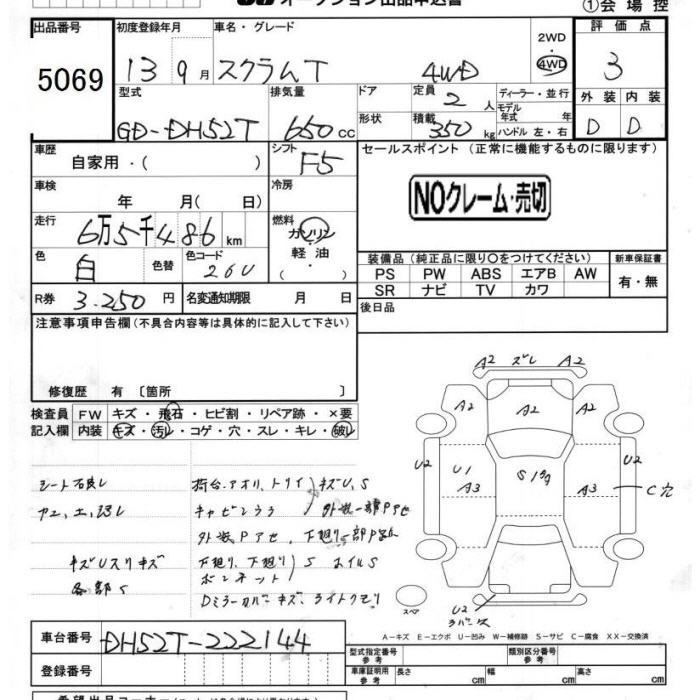 オークション出品申込書
①会場控
出品番号 初度登録年月 車名・グレード 2WD 評価点
5069 13 9月 スクラムT 4WD 4WD 3
型式 排気量 ドア 定員 2人 ディーラー・並行 外装 内装
GD-DH52T 650cc 形状 積載 350kg モデル年式 年 ハンドル 左・右 D D
車歴 自家用・( ) シフト F5 セールスポイント(正常に機能するものに限ります)
車検 年 月(日) 冷房
NOクレーム・売切
走行 6万5千486km 燃料 ガソリン
軽油
・( )
色 白 色替 色コード 26U 装備品(純正品に限り○をつけてください) 新車保証書
PS PW ABS エアB AW 有・無
SR ナビ TV カワ
R券 3.250円 名変通知期限 月 日 後日品
注意事項申告欄(不具合内容等は具体的に記入して下さい)
修復歴 有〔箇所 〕
検査員 FW キズ・飛石・ヒビ割・リペア跡・×要
記入欄 内装 キズ・汚レ・コゲ・穴・スレ・キレ・破レ
荷台、アオリ、トリイ キズU、S
外装一部Pアセ
外装Pアセ 下廻り
キズUスリキズ 下廻り、下廻り S オイルS
各部S ボンネット
Dミラーカバーキズ、ライトクモリ
A2 ズレ A2
A2 A2 A2
U2 U1 S U2
A3 A3 C穴
スペア U2
A−キズ E−エクボ U−凹み W−補修跡 S−サビ C−腐食 XX−交換済
車台番号 DH52T-222144
登録番号
型式指定番号 参考 類別区分番号 参考
車庫証明用 参考 長さ cm 幅 cm 高さ cm